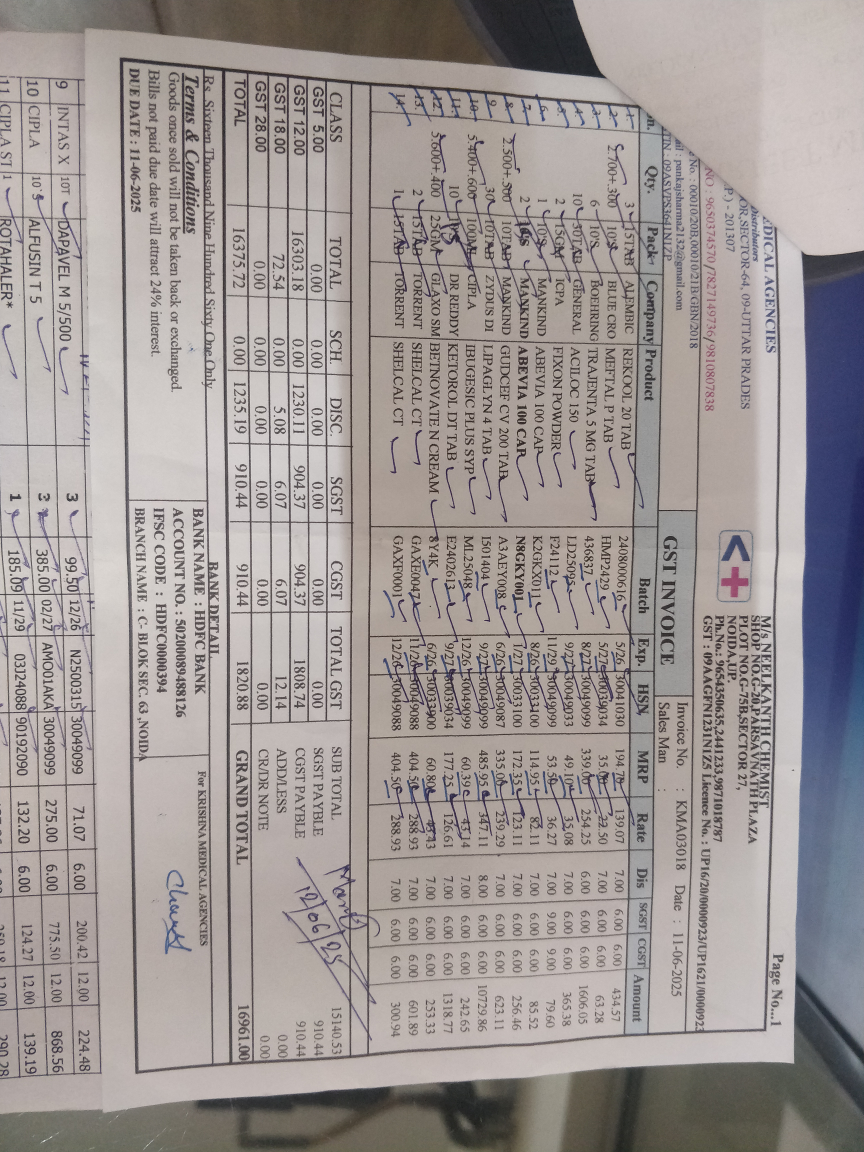 Page No...1
EDICAL AGENCIES
Distributors
OR,SECTOR-64, 09-UTTAR PRADES
P.) - 201307
NO : 9650374570/7827149736/9810807838
No. : 00010/20B,00010/21B/GBN/2018
ail : pankajsharma2132@gmail.com
TIN : 09ASVPS3641N1ZP
M/s NEELKANTH CHEMIST
SHOP NO.G-20,PARSAVNATH PLAZA
PLOT NO.G-75B,SECTOR 27,
NOIDA,UP.
Ph.No.: 9654350635,2441233,9871018787
GST : 09AAGFN1231N1Z5 Licence No. : UP16/20/0000923/UP1621/0000923
GST INVOICE
Invoice No. : KMA03018 Date : 11-06-2025
Sales Man :
n. Qty. Pack Company Product Batch Exp. HSN MRP Rate Dis SGST CGST Amount
1. 3 15TAB ALEMBIC REKOOL 20 TAB 2408000616 5/26 30041030 194.70 139.07 7.00 6.00 6.00 434.57
2. 2.700+.300 10'S BLUE CRO MEFTAL P TAB HMP2429 5/27 30039034 35.00 22.50 7.00 6.00 6.00 63.28
3. 6 10'S BOEHRING TRAJENTA 5 MG TAB 436837 8/27 30049099 339.00 254.25 6.00 6.00 6.00 1606.05
4. 10 30TAB GENERAL ACILOC 150 LD25095 9/27 30049033 49.10 35.08 7.00 6.00 6.00 365.38
5. 2 15GM ICPA FIXON POWDER F24112 11/29 30049099 53.50 36.27 7.00 9.00 9.00 79.60
6. 1 10'S MANKIND ABEVIA 100 CAP K2GKX011 8/26 30033100 114.95 82.11 7.00 6.00 6.00 85.52
7. 2 10'S MANKIND ABEVIA 100 CAP N8GKY001 1/27 30033100 172.35 123.11 7.00 6.00 6.00 256.46
8. 2.500+.500 10TAB MANKIND GUDCEF CV 200 TAB A3AEY008 6/26 30049087 335.00 239.29 7.00 6.00 6.00 623.11
9. 30 10TAB ZYDUS DI LIPAGLYN 4 TAB I501404 9/27 30049099 485.95 347.11 8.00 6.00 6.00 10729.86
10. 5.400+.600 100ML CIPLA IBUGESIC PLUS SYP ML25048 12/26 30049099 60.39 43.14 7.00 6.00 6.00 242.65
11. 10 DR REDDY KETOROL DT TAB E2402613 9/27 30039034 177.25 126.61 7.00 6.00 6.00 1318.77
12. 5.600+.400 25GM GLAXO SM BETNOVATE N CREAM 8Y4K 6/26 30033900 60.80 43.43 7.00 6.00 6.00 253.33
13. 2 15TAB TORRENT SHELCAL CT GAXE0047 11/26 30049088 404.50 288.93 7.00 6.00 6.00 601.89
14. 1 15TAB TORRENT SHELCAL CT GAXF0001 12/26 30049088 404.50 288.93 7.00 6.00 6.00 300.94
CLASS TOTAL SCH. DISC. SGST CGST TOTAL GST
GST 5.00 0.00 0.00 0.00 0.00 0.00 0.00
GST 12.00 16303.18 0.00 1230.11 904.37 904.37 1808.74
GST 18.00 72.54 0.00 5.08 6.07 6.07 12.14
GST 28.00 0.00 0.00 0.00 0.00 0.00 0.00
TOTAL 16375.72 0.00 1235.19 910.44 910.44 1820.88
SUB TOTAL 15140.53
SGST PAYBLE 910.44
CGST PAYBLE 910.44
ADD/LESS 0.00
CR/DR NOTE 0.00
GRAND TOTAL 16961.00
12/06/25
Rs. Sixteen Thousand Nine Hundred Sixty One Only
Terms & Conditions
Goods once sold will not be taken back or exchanged.
Bills not paid due date will attract 24% interest.
DUE DATE : 11-06-2025
BANK DETAIL
BANK NAME : HDFC BANK
ACCOUNT NO. : 50200089488126
IFSC CODE : HDFC0000394
BRANCH NAME : C- BLOK SEC. 63 ,NOIDA
For KRISHNA MEDICAL AGENCIES
9 INTAS X 10T DAPAVEL M 5/500 3 99.50 12/26 N2500315 30049099 71.07 6.00 200.42 12.00 224.48
10 CIPLA 10'S ALFUSIN T 5 3 385.00 02/27 AMO01AKA 30049099 275.00 6.00 775.50 12.00 868.56
11 CIPLA ST 1 ROTAHALER* 1 185.09 11/29 03J24088 90192090 132.20 6.00 124.27 12.00 139.19